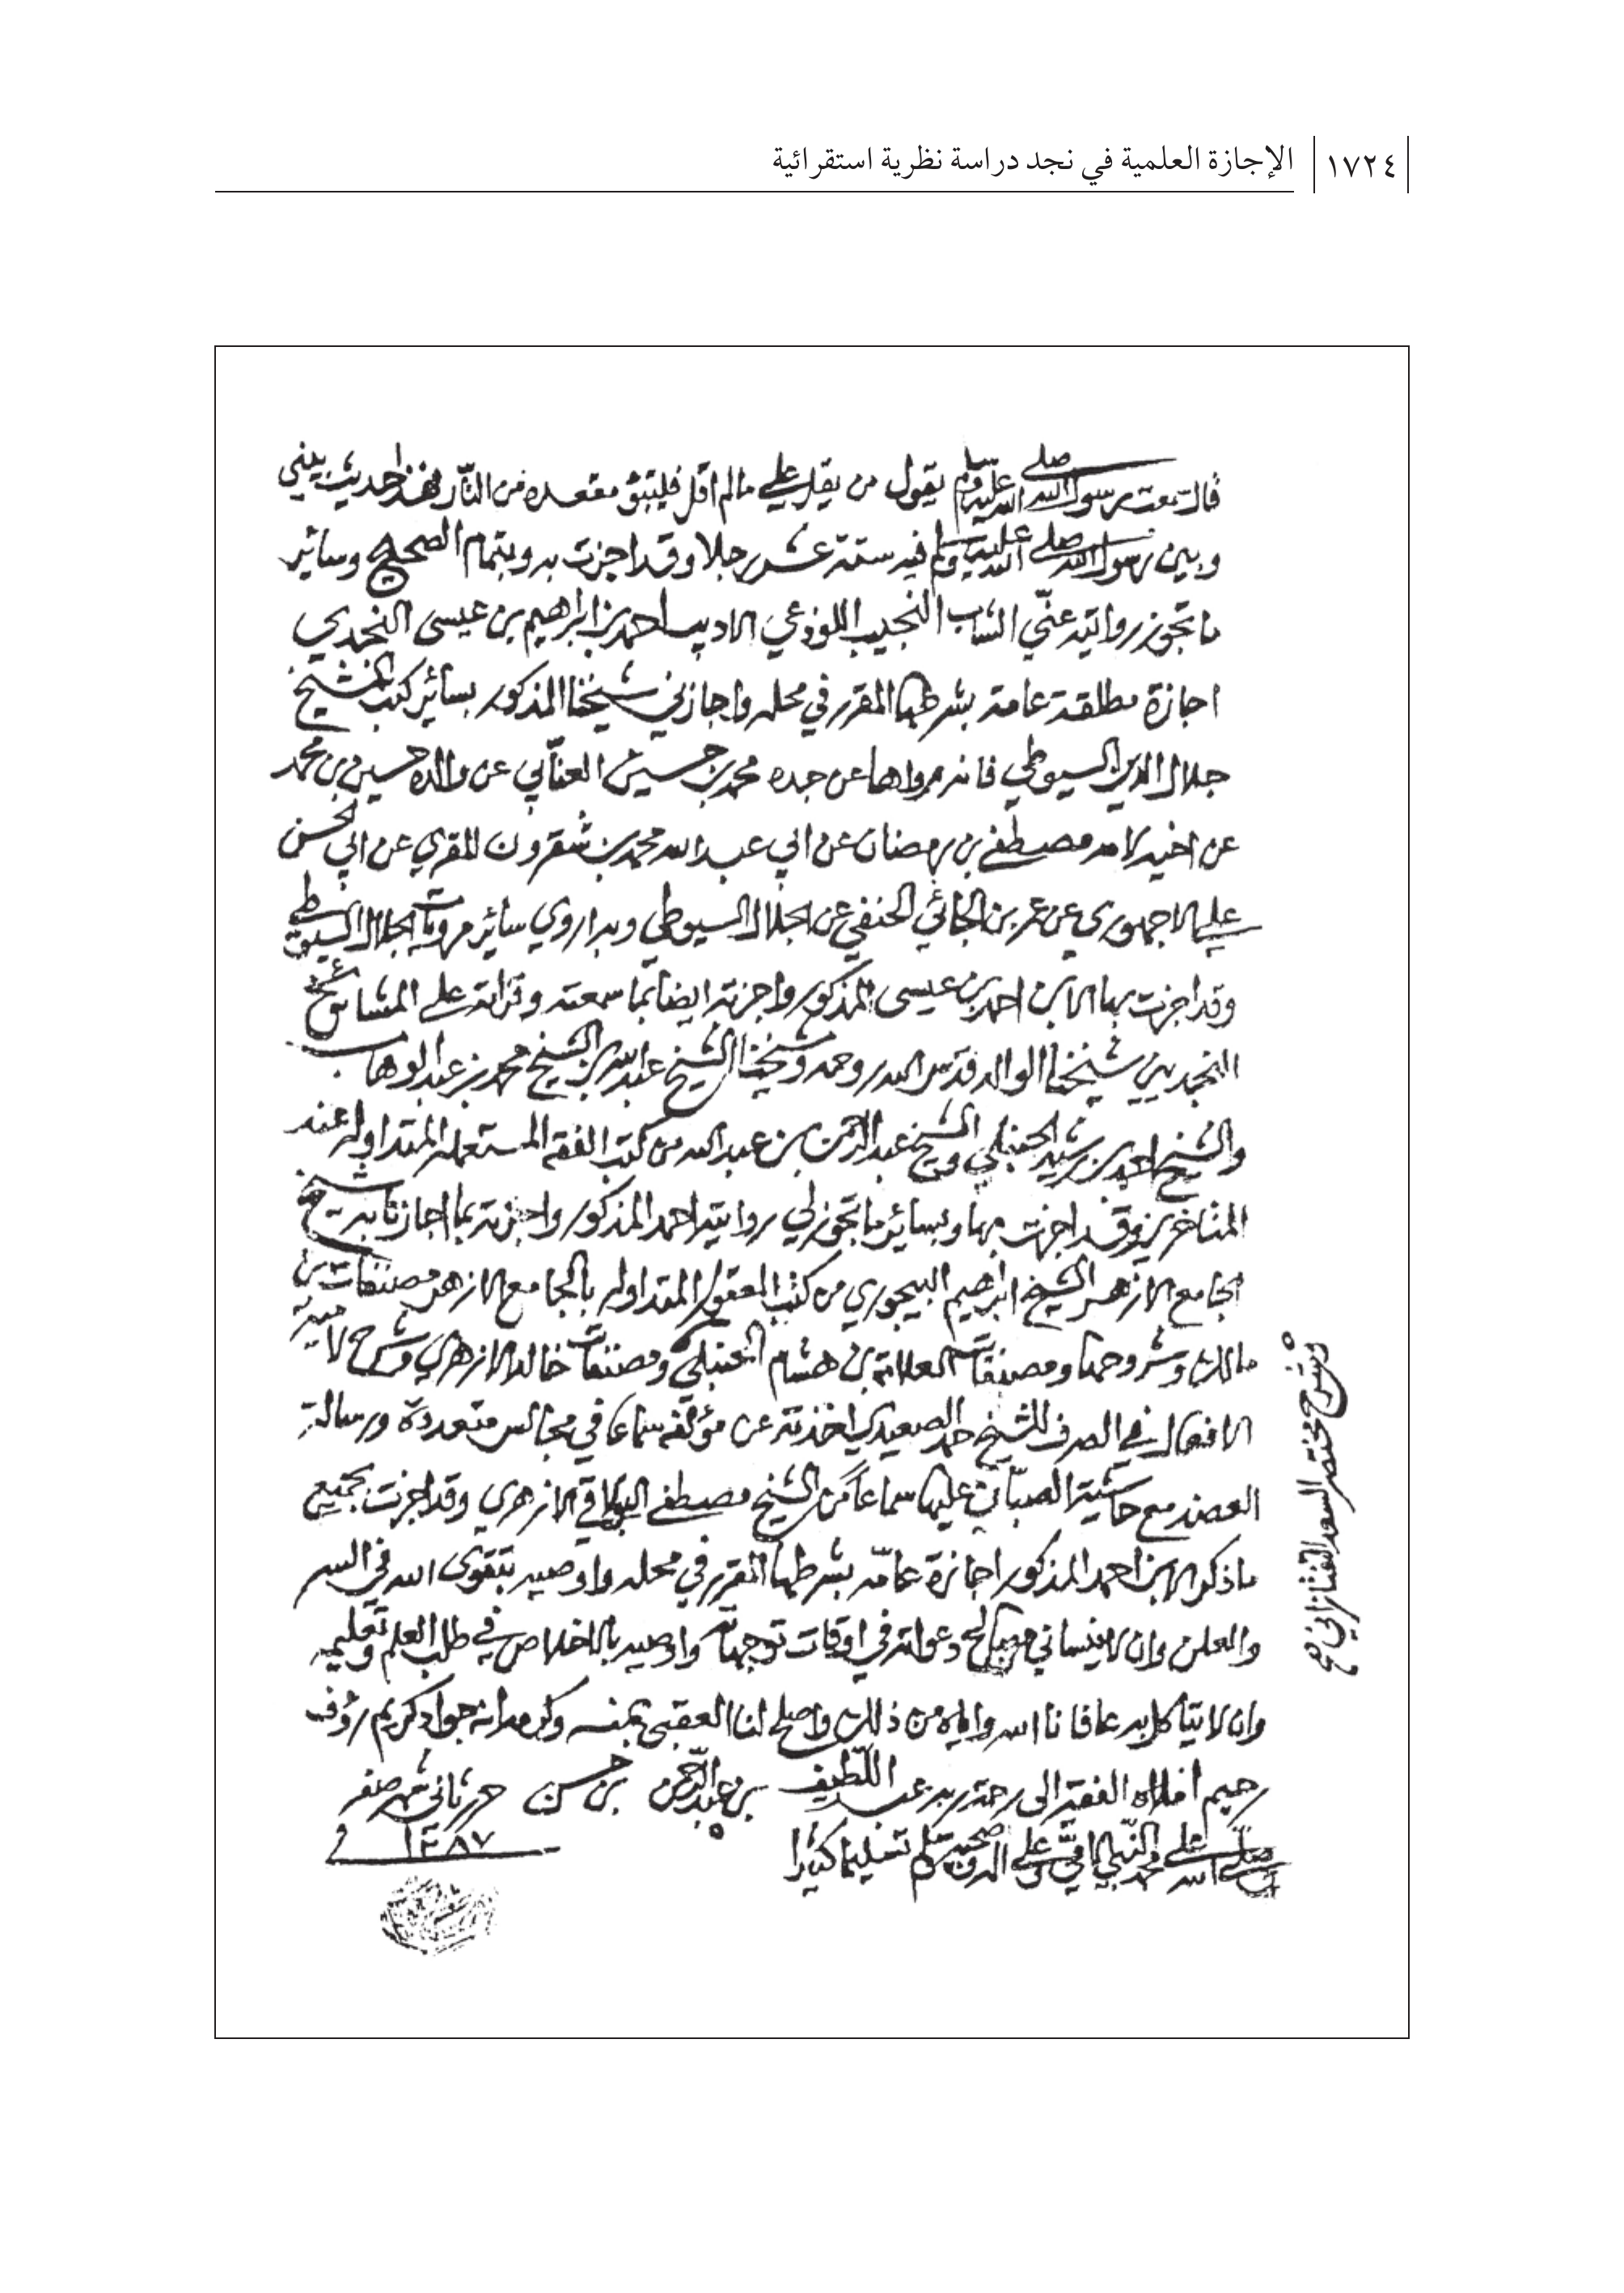 ١٧٢٤ الإجازة العلمية في نجد دراسة نظرية استقرائية
قال سمعت رسول الله صلى الله عليه وسلم يقول من يقل علي مالم اقل فليتبوؤ مقعده من النار فهذا حديث بيني
وبين رسول الله صلى الله عليه وسلم فيه ستة عشر رجلا وقد اجزت به وبتمام الصحيح وسائر
ما تجوز روايته عنّي الشاب النجيب اللوذعي الاديب احمد بن ابراهيم بن عيسى النجدي
اجازة مطلقة عامة بشرطها المقرر في محله واجازني شيخنا المذكور بسائر كتب الشيخ
جلال الدين السيوطي فانه رواها عن جده محمد بن حسين العنّابي عن والده حسين بن محمد
عن اخيه لامه مصطفى بن رمضان عن ابي عبد الله محمد بن شقرون المقري عن ابي الحسن
علي الاجهوري عن عمر بن الجائي الحنفي عن الجلال السيوطي وبه اروي سائر مرويات الجلال السيوطي
وقد اجزت بها الابن احمد بن عيسى المذكور واجزته ايضا بما سمعته وقرأته على المشائخ
النجديين شيخنا الوالد قدس الله روحه وشيخنا الشيخ عبد الله بن الشيخ محمد بن عبد الوهاب
والشيخ احمد بن رشيد الحنبلي والشيخ عبد الرحمن بن عبد الله من كتب الفقه المستعمله المتداوله عند
المتاخرين وقد اجزت بها وبسائر ما تجوز لي روايته احمد المذكور واجزته بما اجازنا به شيخ
الجامع الازهر الشيخ ابراهيم البيجوري من كتب المعقول المتداوله بالجامع الازهر مصنفات بن
مالك وشروحها ومصنفات العلامة بن هشام الحنبلي ومصنفات خالد الازهري وشرح لامية
الافعال في الصرف للشيخ حمد الصعيدي اخذته عن مؤلفه سماعا في مجالس متعددة ورسالة
العضد مع حاشية الصبان عليها سماعاً من الشيخ مصطفى البولاقي الازهري وقد اجزت بجميع
ما ذكر الابن احمد المذكور اجازة عامّه بشرطها المقرر في محله واوصيه بتقوى الله في السر
والعلن وان لا ينساني من صالح دعواته في اوقات توجهاته واوصيه بالاخلاص في طلب العلم وتعليمه
وان لا يتأكل به عافانا الله واياه من ذلك واصلح لنا العقبى بمنه وكرمه انه جواد كريم رؤف
رحيم املاه الفقير الى رحمة ربه عبد اللّطيف بن عبد الرّحمن بن حسن حرر ثاني شهر صفر
١٢٨٧
وصلى الله على محمد النبي الامّي وعلى اله وصحبه وسلم تسليما كثيرا
وشرح مختصر السعد التفتازاني صح